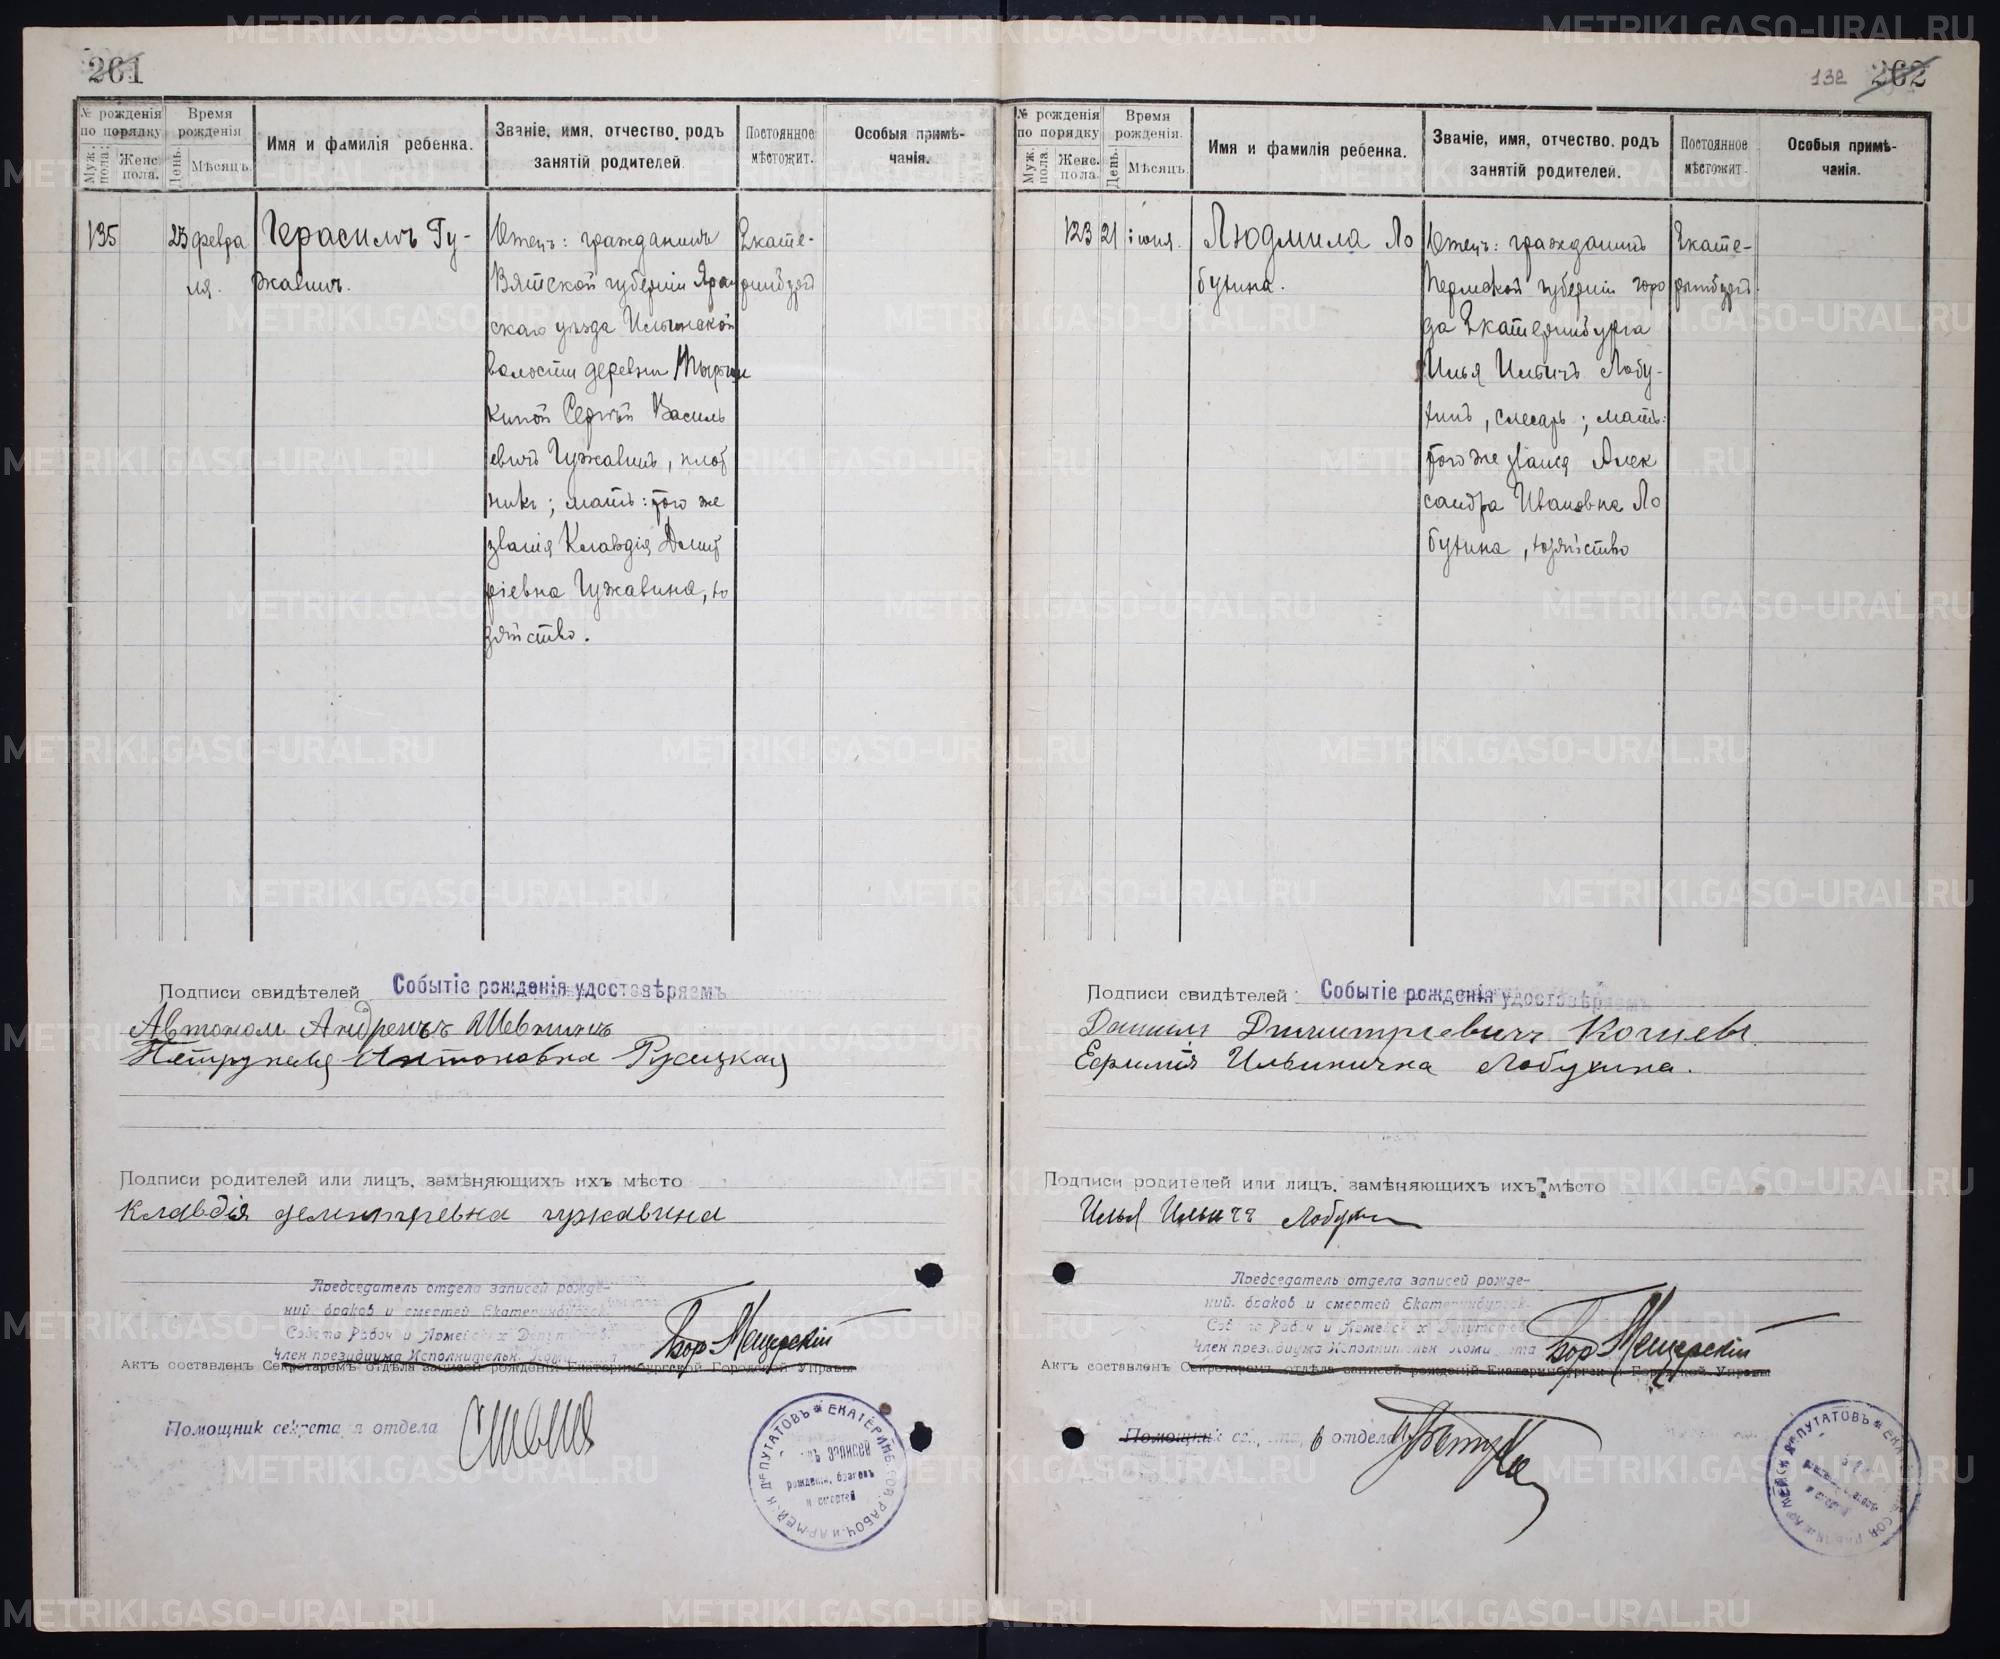 261
№ рожденія по порядку
Муж. пола.
Женс. пола.
Время рожденія
День.
Мѣсяцъ.
Имя и фамилія ребенка.
Званіе, имя, отчество, родъ занятій родителей.
Постоянное мѣстожит.
Особыя примѣчанія.
135
23
февра
ля.
Герасимъ Гу-
жавинъ.
Отецъ: гражданинъ
Вятской губерніи Яран
скаго уѣзда Ильинской
волости деревни
киной Сергѣй Василь
евичъ Гужавинъ, плот
никъ; мать: того же
званія Клавдія Димит
ріевна Гужавина, хо
зяйство.
Екате-
ринбургъ
Подписи свидѣтелей
Событіе рожденія удостовѣряемъ
Автоном Андреичъ Шевнинъ
Антоновна Русицкая
Подписи родителей или лицъ, замѣняющихъ ихъ мѣсто
Клавдія демитревна гужавина
Предсѣдатель отдела записей рожде-
ний, браков и смертей Екатеринбургск.
Совѣта Рабоч и Армейских Депутатов.
Член президиума Исполнительн.
Бор Мещерскій
Актъ составленъ Секретаремъ отдѣла записей рожденій Екатеринбургской Городской Управы
Помощник секретаря отдела
ЕКАТЕРИНБ. СОВ. РАБОЧ. И АРМЕЙСК. ДЕПУТАТОВЪ
записей
рожденій, браковъ
и смертей
132
262
№ рожденія по порядку
Муж. пола.
Женс. пола.
Время рожденія.
День.
Мѣсяцъ.
Имя и фамилія ребенка.
Званіе, имя, отчество, родъ занятій родителей.
Постоянное мѣстожит.
Особыя примѣчанія.
123
21
іюня.
Людмила Ло
бухина.
Отецъ: гражданинъ
Пермской губерніи горо
да Екатеринбурга
Илья Ильичъ Лобу-
хинъ, слесарь; мать:
того же званія Алек
сандра Ивановна Ло
бухина, хозяйство
Екате-
ринбургъ.
Подписи свидѣтелей
Событіе рожденія удостовѣряемъ
Даниилъ Димитріевичъ Кочневъ.
Ефимія Ильинична Лобухина.
Подписи родителей или лицъ, замѣняющихъ ихъ мѣсто
Илья Ильичъ Лобухин
Предсѣдатель отдела записей рожде-
ний, браков и смертей Екатеринбургск.
Совѣта Рабоч и Армейских Депутатов
Член президиума Исполнительн Комитета
Бор Мещерскій
Актъ составленъ Секретаремъ отдѣла записей рожденій Екатеринбургской Городской Управы
Помощник отдела
METRIKI.GASO-URAL.RU